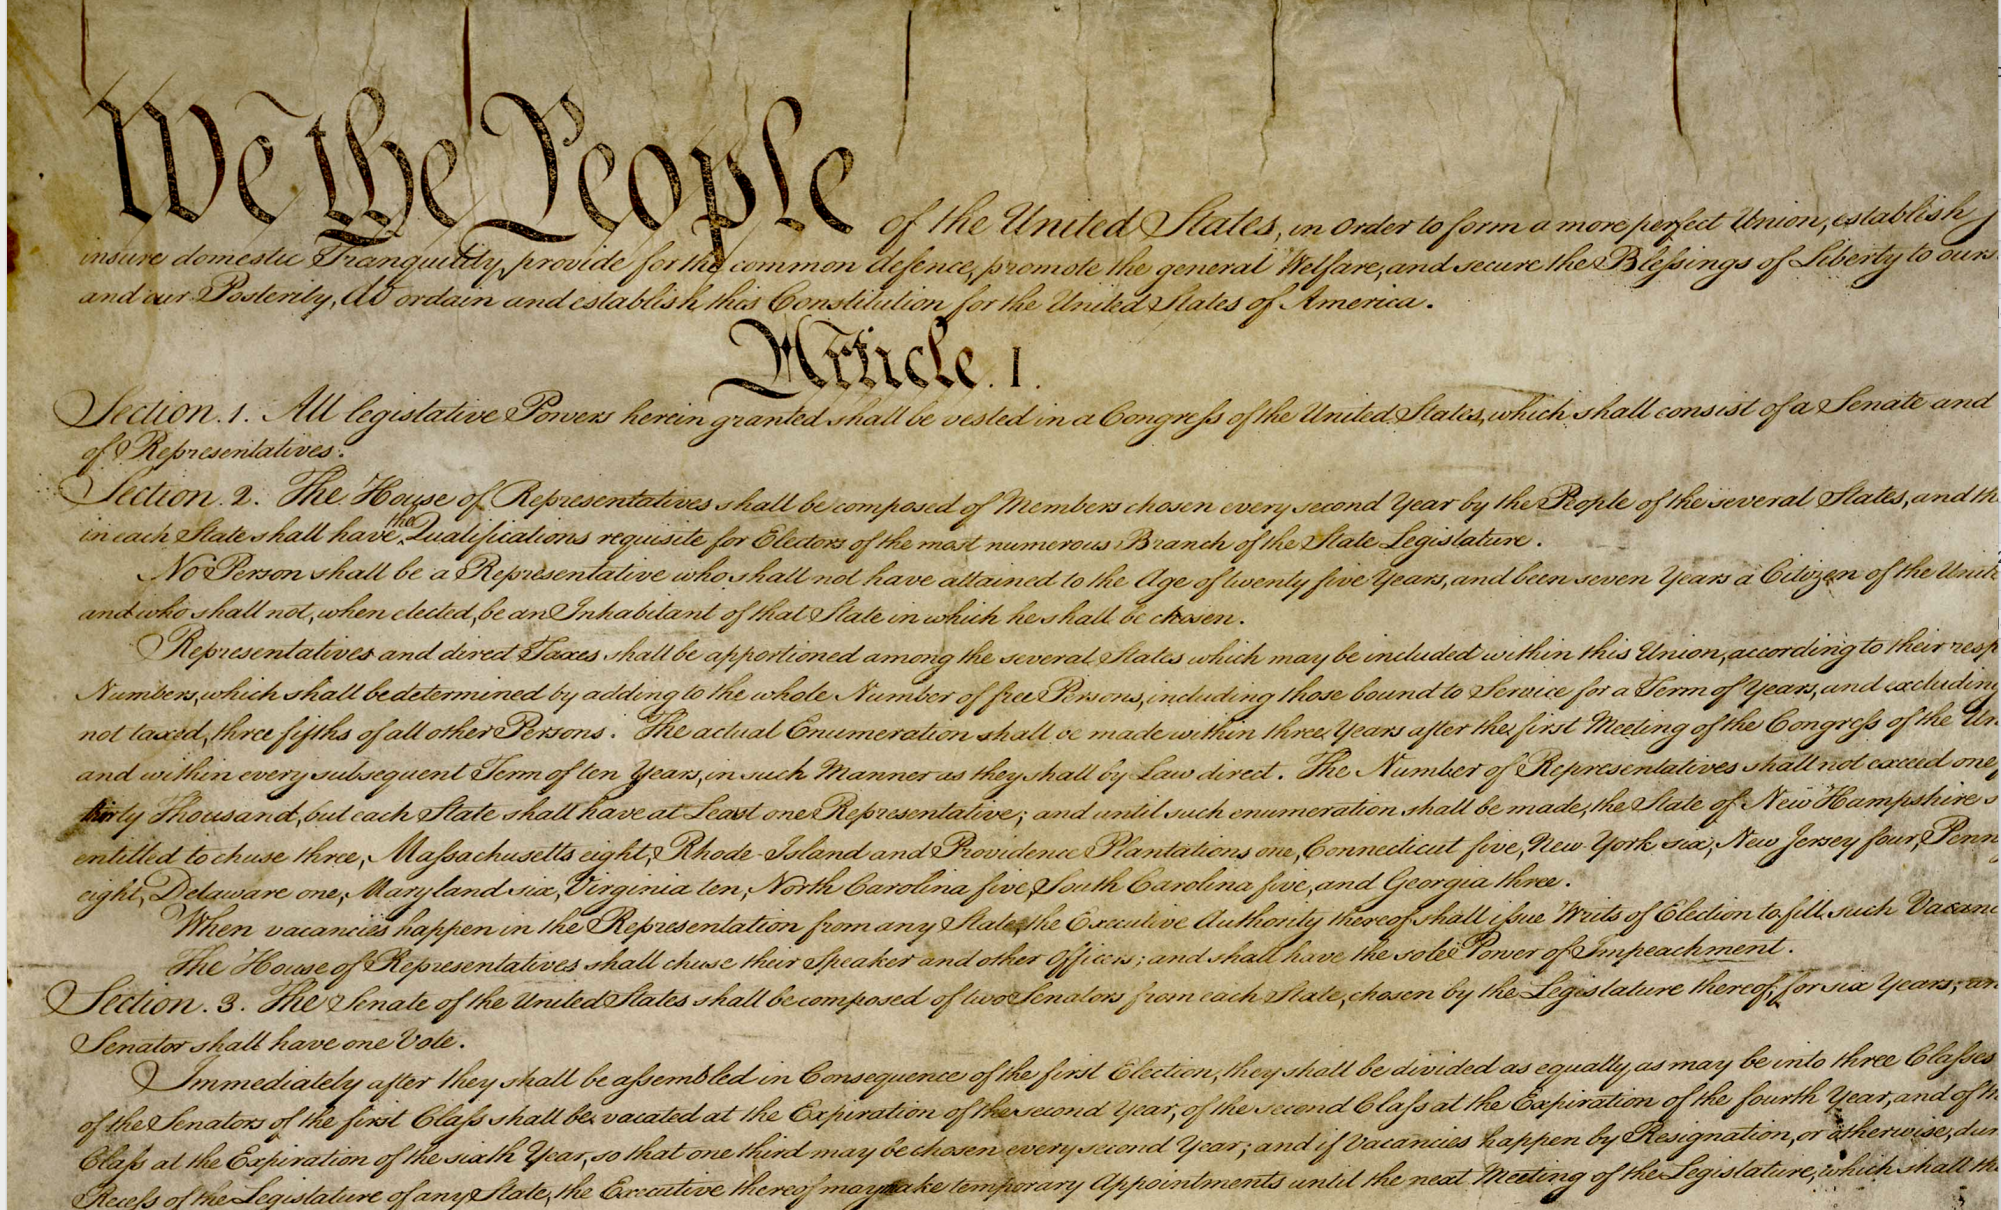 We the People of the United States, in Order to form a more perfect Union, establish J
insure domestic Tranquility, provide for the common defence, promote the general Welfare, and secure the Blessings of Liberty to ours
and our Posterity, do ordain and establish this Constitution for the United States of America.
Article. I.
Section. 1. All legislative Powers herein granted shall be vested in a Congress of the United States, which shall consist of a Senate and
of Representatives.
Section. 2. The House of Representatives shall be composed of Members chosen every second Year by the People of the several States, and th
in each State shall have the Qualifications requisite for Electors of the most numerous Branch of the State Legislature.
No Person shall be a Representative who shall not have attained to the Age of twenty five Years, and been seven Years a Citizen of the Unite
and who shall not, when elected, be an Inhabitant of that State in which he shall be chosen.
Representatives and direct Taxes shall be apportioned among the several States which may be included within this Union, according to their resp
Numbers, which shall be determined by adding to the whole Number of free Persons, including those bound to Service for a Term of Years, and excluding
not taxed, three fifths of all other Persons. The actual Enumeration shall be made within three Years after the first Meeting of the Congress of the Un
and within every subsequent Term of ten Years, in such Manner as they shall by Law direct. The Number of Representatives shall not exceed one
thirty Thousand, but each State shall have at Least one Representative; and until such enumeration shall be made, the State of New Hampshire s
entitled to chuse three, Massachusetts eight, Rhode-Island and Providence Plantations one, Connecticut five, New-York six, New Jersey four, Penn
eight, Delaware one, Maryland six, Virginia ten, North Carolina five, South Carolina five, and Georgia three.
When vacancies happen in the Representation from any State, the Executive Authority thereof shall issue Writs of Election to fill such Vacanc
The House of Representatives shall chuse their Speaker and other Officers; and shall have the sole Power of Impeachment.
Section. 3. The Senate of the United States shall be composed of two Senators from each State, chosen by the Legislature thereof, for six Years; an
Senator shall have one Vote.
Immediately after they shall be assembled in Consequence of the first Election, they shall be divided as equally as may be into three Classes
of the Senators of the first Class shall be vacated at the Expiration of the second Year, of the second Class at the Expiration of the fourth Year, and of th
Class at the Expiration of the sixth Year, so that one third may be chosen every second Year; and if Vacancies happen by Resignation, or otherwise, dur
Recess of the Legislature of any State, the Executive thereof may make temporary Appointments until the next Meeting of the Legislature, which shall th